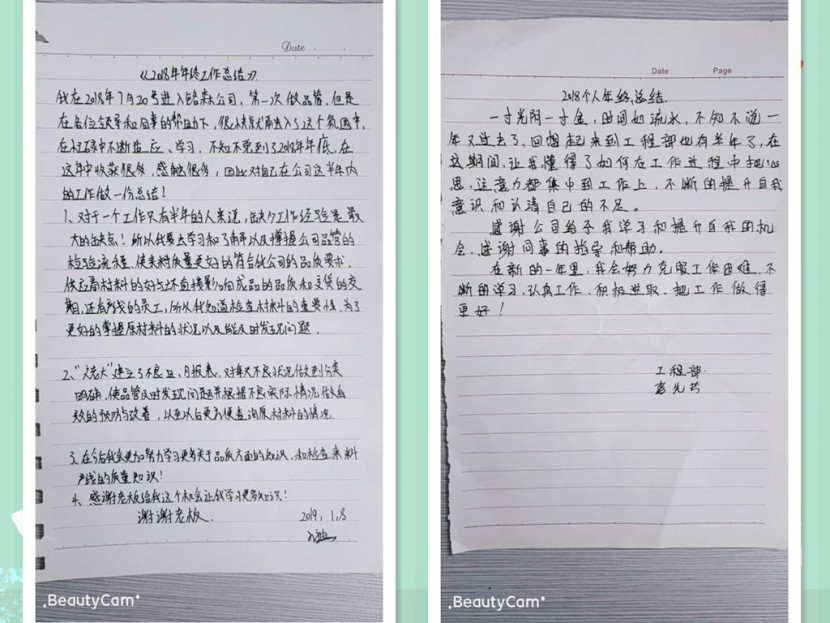 Date
《2018年年终工作总结》
我在2018年7月20号进入铭森公司,第一次做品管,但是
在各位领导和同事的帮助下,很快就融入了这个氛围中,
在忙碌中不断适应、学习,不知不觉到了2018年年底,在
这年中收获很多,感触很多,因此对自己在公司这半年内
的工作做一份总结!
1、对于一个工作只有半年的人来说,缺少工作经验是最
大的缺点!所以我要去学习和了解以及撑握公司品管的
检验流程,使来料质量更好的符合我公司的品质要求,
供应商材料的好与坏直接影响成品的品质和交货的交
期,还有产线的员工,所以我知道检查材料的重要性,为了
更好的掌握原材料的状况以及能及时发现问题.
2、"建立了不良日,月报表,对每次不良状况做到分类
明确,使品管及时发现问题并根据不良实际情况做有
效的预防与改善,以至以后更方便查询原材料的情况.
3、在今后我会更加努力学习更多关于品质方面的知识,和检查来料
产线的质量知识!
4、感谢老板给我这个机会让我学习更多知识!
谢谢老板.
2019,1,8
BeautyCam
Date Page
2018个人年终总结.
一寸光阴一寸金,时间如流水,不知不觉一
年又过去了,回想起来到工程部也有半年了,在
这期间,让我懂得了如何在工作过程中把心
思,注意力都集中到工作上,不断的提升自我
意识和认清自己的不足。
感谢公司给予我学习和提升自我的机
会,感谢同事的指导和帮助。
在新的一年里,我会努力克服工作困难,不
断的学习,认真工作,积极进取,把工作做得
更好!
工程部.
BeautyCam